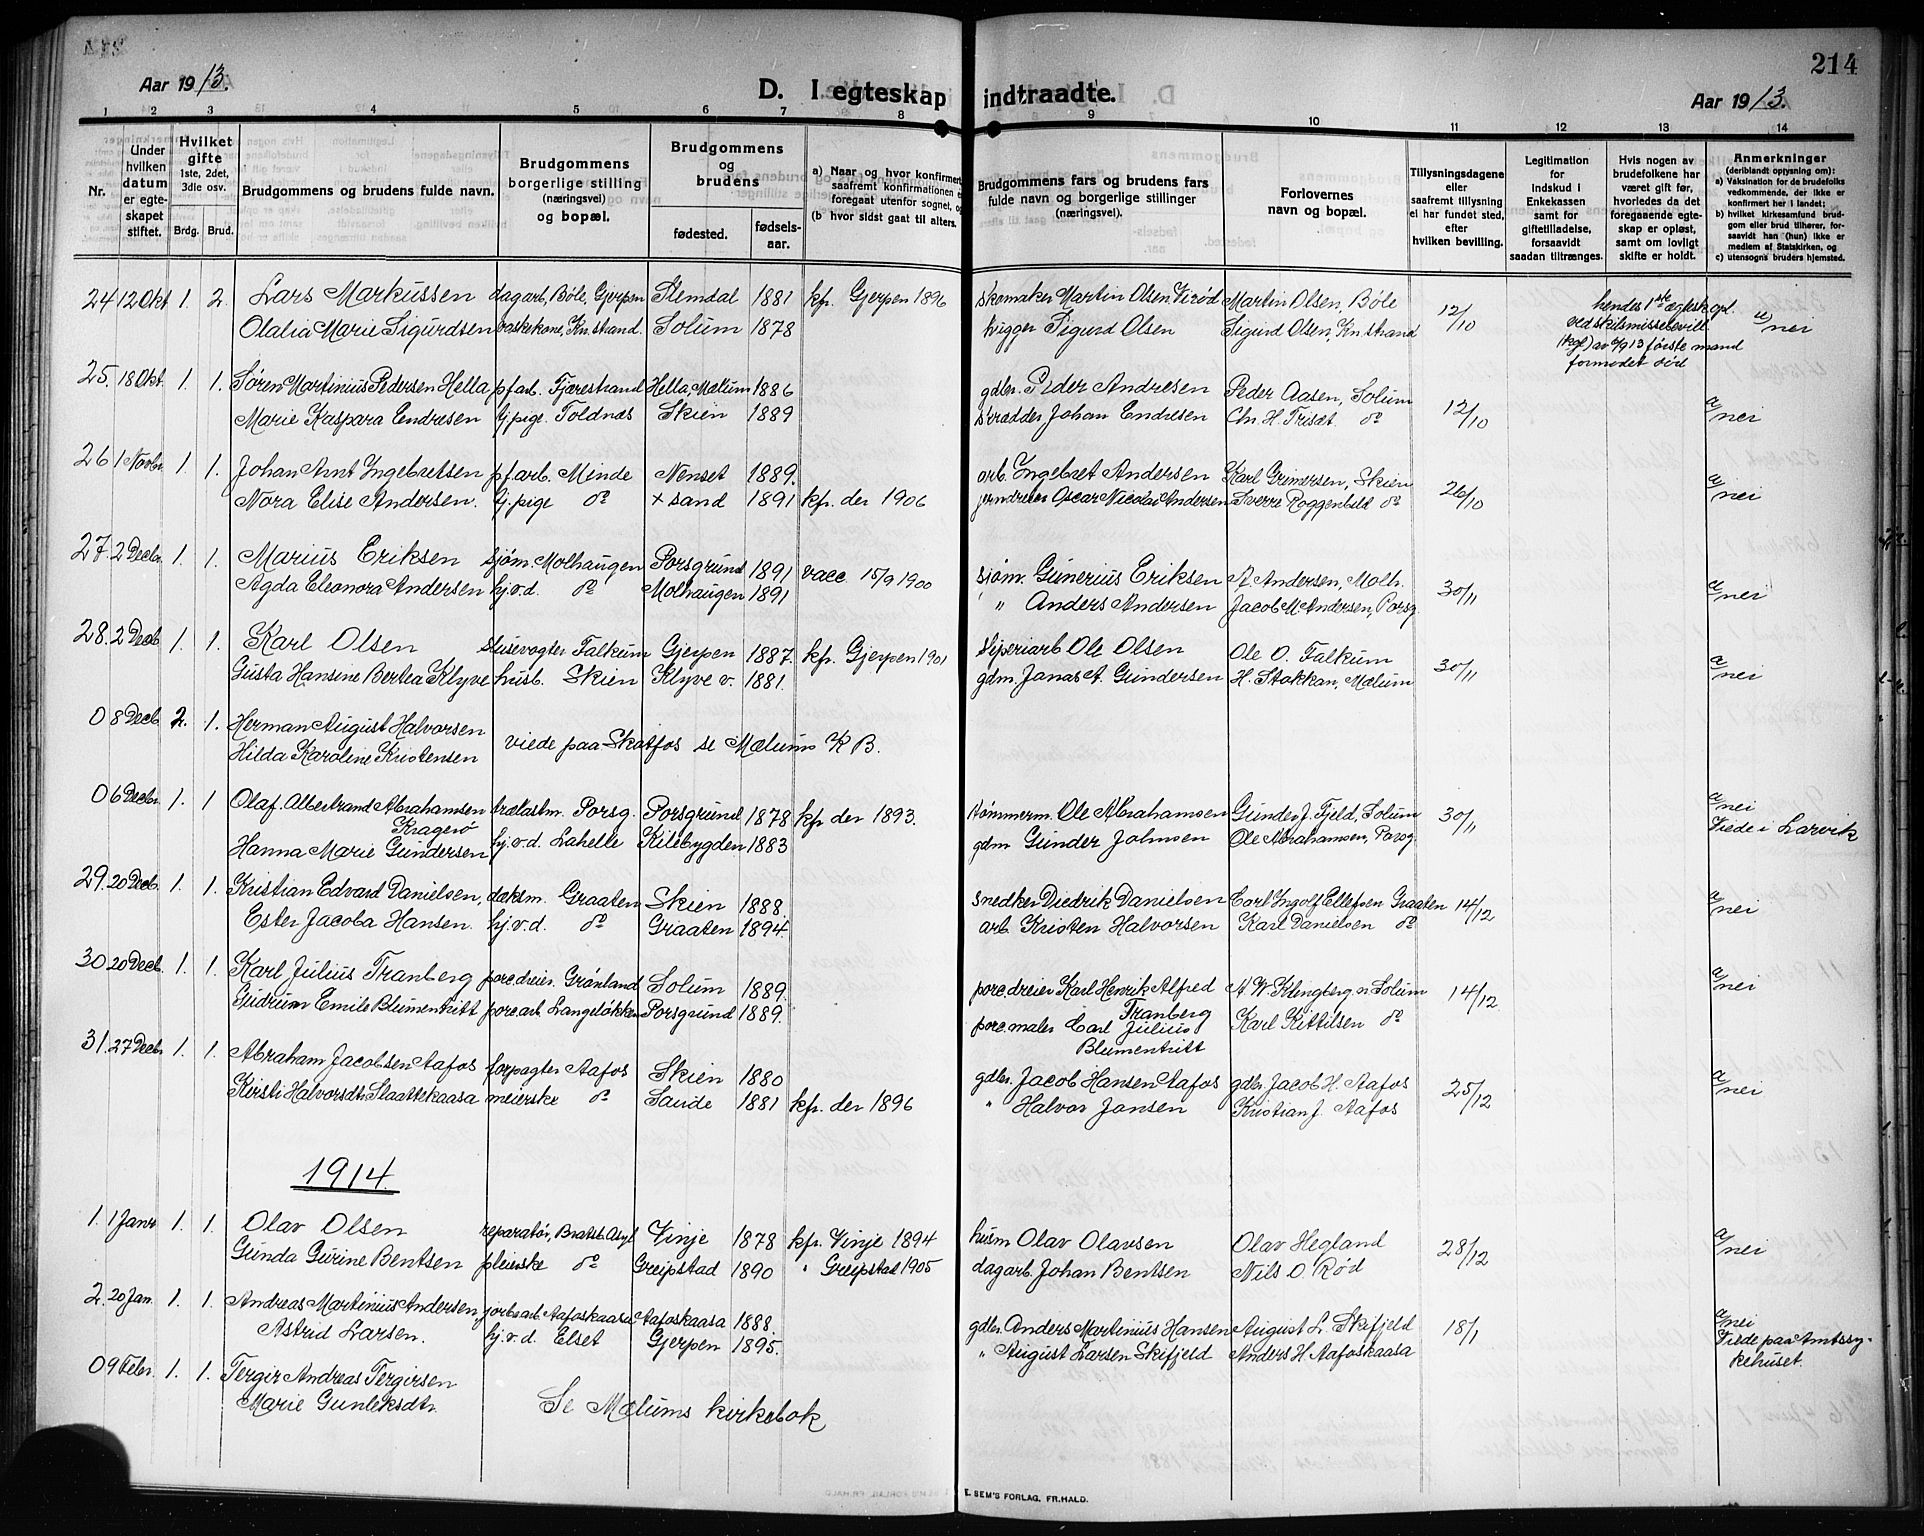 214
Aar 1913.
D. I egteskap indtraadte.
Aar 1913.
1 2 3 4 5 6 7 8 9 10 11 12 13 14
Nr.
Under hvilken datum er egteskapet stiftet.
Hvilket gifte 1ste, 2det, 3die osv.
Brdg. Brud.
Brudgommens og brudens fulde navn.
Brudgommens borgerlige stilling (næringsvei) og bopæl.
Brudgommens og brudens
fødested. fødselsaar.
a) Naar og hvor konfirmert, saafremt konfirmationen er foregaat utenfor sognet, og
(b hvor sidst gaat til alters.
Brudgommens fars og brudens fars fulde navn og borgerlige stillinger (næringsvei).
Forlovernes navn og bopæl.
Tillysningsdagene eller saafremt tillysning ei har fundet sted, efter hvilken bevilling.
Legitimation for Indskud i Enkekassen samt for giftetilladelse, forsaavidt saadan tiltrænges.
Hvis nogen av brudefolkene har været gift før, hvorledes da det foregaaende egteskap er opløst, samt om lovligt skifte er holdt.
Anmerkninger (deriblandt opysning om): a) Vaksination for de brudefolks vedkommende, der ikke er konfirmert her i landet; b) hvilket kirkesamfund brudgom eller brud tilhører, forsaavidt han (hun) ikke er medlem af Statskirken, og c) utensogns bruders hjemsted.
24 12 Okt 1. 2. Lars Markussen dagarb, Bøle, Gjerpen Slemdal 1881 kfr. Gjerpen 1896 skomaker Martin Olsen Virød Martin Olsen, Bøle 12/10 hendes 1ste egtesk opl. ved skilsmissebevill. (kgl) av 6/9 13 første mand formodet død a/ nei
Olalia Marie Sigurdsen vaskekone, Kn.strand. Solum 1878 hugger Sigurd Olsen Sigurd Olsen, Kn.strand
25. 18 Okt. 1. 1. Søren Martinius Pedersen Hella pfarb. Fjærestrand Hella, Mælum 1886 gdbr. Peder Andresen Peder Aasen, Solum 12/10 a/ nei
Marie Kaspara Endresen hj.pige. Toldnæs Skien 1889 skrædder Johan Endresen Chr. H. Trisæt do
26 1 Novbr. 1. 1. Johan Arnt Ingebretsen pf.arb. Minde Nenset 1889. arb. Ingebret Andersen Karl Grimersen, Skien 26/10 a/ nei
Nora Elise Andersen. hj.pige do + sand 1891 kfr. der 1906 jerndreier Oscar Nicolai Andersen Sverre Roggenbild do
27. 2 Decbr. 1. 1. Marius Eriksen sjøm. Molhaugen Porsgrund 1891 vacc. 15/9 1900 sjøm. Gunerius Eriksen A. Andersen, Molh. 30/11 a/ nei
Agda Eleonora Andersen hj.v.d. do Molhaugen 1891 " Anders Andersen Jacob M Andersen, Porsg.
28. 2 Decb. 1. 1. Karl Olsen slusevogter Falkum Gjerpen 1887. kfr. Gjerpen 1901 sliperiarb Ole Olsen Ole O. Falkum 30/11 a/ nei
Gusta Hansine Bertea Klyve husb. Skien Klyve v. 1881. gdm. Jonas A. Gundersen H. Stokkan, Mælum
0 8 Decb. 2. 1. Herman August Halvorsen
Hilda Karoline Kristensen viede paa Skotfos se Mælums K B.
0 6 Decbr. 1. 1 Olaf. Albertrand Abrahamsen Kragerø trælastm. Porsg. Porsgrund 1878 kfr der 1893. tømmerm. Ole Abrahamsen Gunder J. Fjeld, Solum 30/11 a/ nei Viede i Larvik
Hanna Marie Gundersen hj.v.d. Lahelle Kilebygden 1883 gdm. Gunder Johnsen Ole Abrahamsen, Porsg.
29. 20 Decb. 1. 1. Kristian Edvard Danielsen, dæksm. Graaten Skien 1888. snedker Diedrik Danielsen Carl Ingolf Ellefsen Graaten 14/12 a/ nei
Ester Jacoba Hansen. hj.v.d. do Graaten 1894. arb. Kristen Halvorsen Karl Danielsen do
30 20 Decb. 1. 1. Karl Julius Tranberg porc.dreier. Grønland Solum 1889. porc.dreier Karl Henrik Alfred Tranberg A. W. Klingberg v. Solum 14/12. a/ nei
Gudrun Emilie Blumentritt porc.arb. Langeløkken Porsgrund 1889. porc.maler Carl Julius Blumentritt Karl Kittilsen do
31. 27 Decbr 1. 1. Abraham Jacobsen Aafos forpagter Aafos Skien 1880 gdbr. Jacob Hansen Aafos gdbr. Jacob H. Aafos 25/12 a/ nei
Kirsti Halvorsdtr. Slaattekaasa meierske do Saude 1881 kfr. der 1896 " Halvor Jansen Kristian J. Aafos
1914.
1. 1 Janr 1. 1. Olav Olsen reparatør, Bratsb. Asyl Vinje 1878 kfr. Vinje 1894 husm Olav Olavsen Olav Hegland 28/12 a/ nei
Gunda Gurine Bentsen pleierske do Greipstad 1890 " Greipstad 1905 dagarb. Johan Bentsen Nils O. Rød
2. 20 Jan. 1. 1. Andreas Martinius Andersen, jorbr.arb. Aafoskaasa Aafoskaasa 1888. gdbr. Anders Martinius Hansen August L. Skifjeld 18/1 a/ nei Viede paa Amtssykehuset.
Astrid Larsen. hj.v.d. Elset Gjerpen 1895. " August Larsen Skifjeld Anders H. Aafoskaasa
0 9 Febr. 1. 1. Tergir Andreas Tergirsen
Marie Gunleksdtr. Se Mælums kirkebok
E. SEM'S FORLAG, FR.HALD.